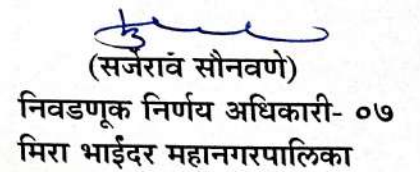 (सजेरावं सौनवणे)
निवडणूक निर्णय अधिकारी- ०७
मिरा भाईंदर महानगरपालिका